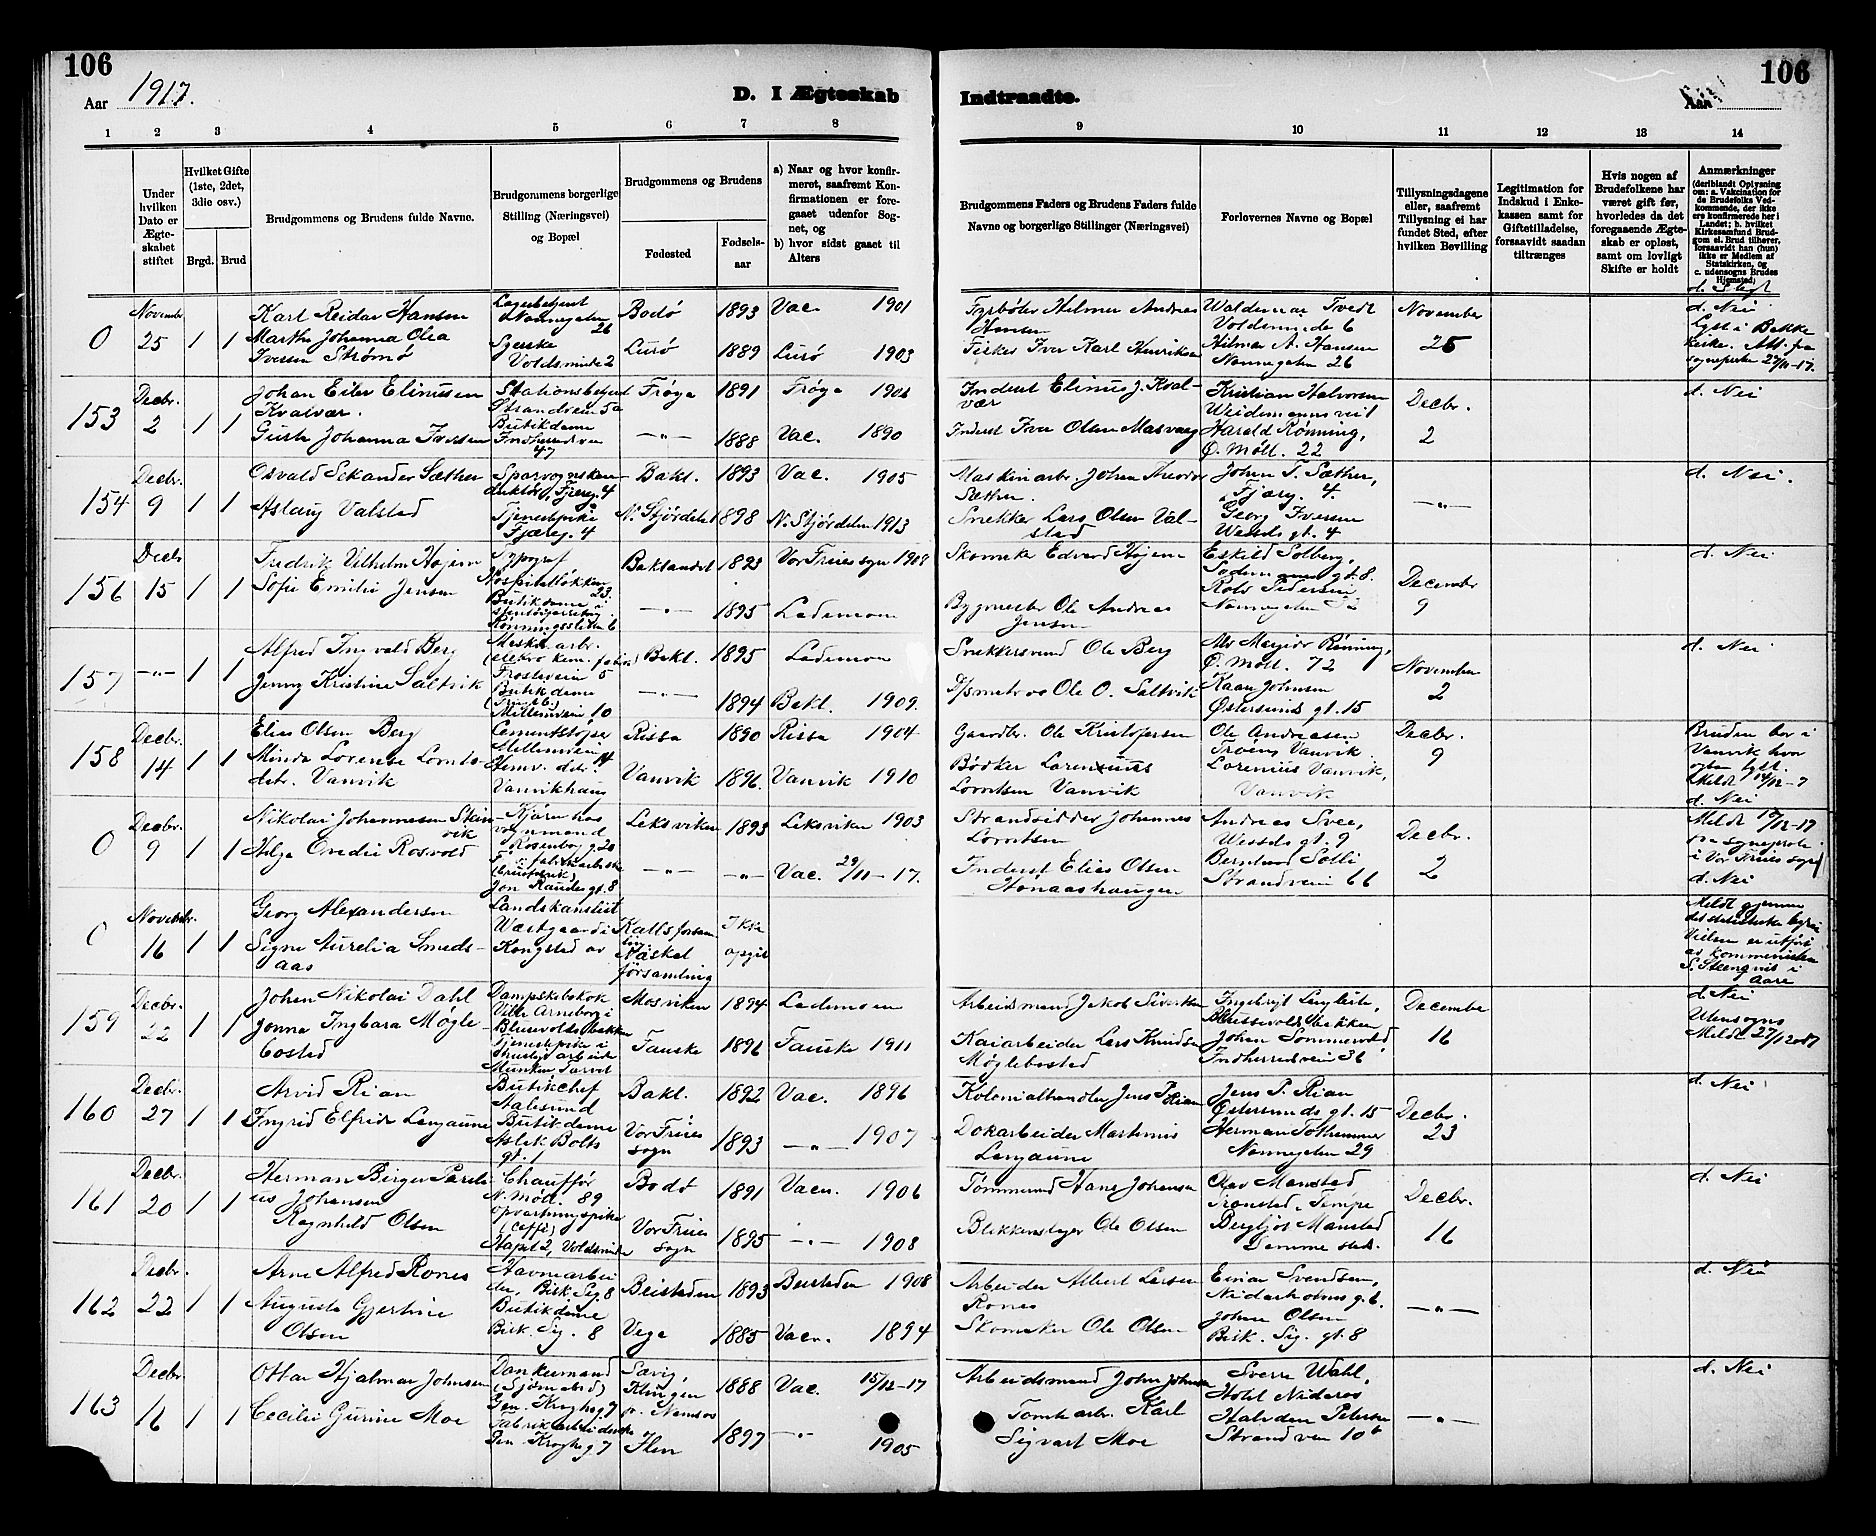 106
106
Aar 1917.
D. I Ægteskab
Indtraadte.
Aar
1 2 3 4 5 6 7 8 9 10 11 12 13 14
Under hvilken Dato er Ægteskabet stiftet
Hvilket Gifte (1ste, 2det, 3die osv.)
Brgd. Brud
Brudgommens og Brudens fulde Navne.
Brudgommens borgerlige Stilling (Næringsvei) og Bopæl
Brudgommens og Brudens
Fødested
Fødsels-aar
a) Naar og hvor konfirmeret, saafremt Konfirmationen er foregaaet udenfor Sognet, og
b) hvor sidst gaaet til Alters
Brudgommens Faders og Brudens Faders fulde Navne og borgerlige Stillinger (Næringsvei)
Forlovernes Navne og Bopæl
Tillysningsdagene eller, saafremt Tillysning ei har fundet Sted, efter hvilken Bevilling
Legitimation for Indskud i Enkekassen samt for Giftetilladelse, forsaavidt saadan tiltrænges
Hvis nogen af Brudefolkene har været gift før, hvorledes da det foregaaende Ægteskab er opløst, samt om lovligt Skifte er holdt
Anmærkninger
(deriblandt Oplysning om: a. Vakcination for de Brudefolks Vedkommende, der ikke ere konfirmerede her i Landet; b. hvilket Kirkesamfund Brudgom el. Brud tilhører, forsaavidt han (hun) ikke er Medlem af Statskirken, og c. udensogns Brudes Hjemsted)
0 Novembr. 25 1 1
Karl Reidar Hansen
Martha Johanna Olea
Iversen Strømø
Lagerbetjent
Nonnegaten 26
Syerske
Voldsminde 2
Bodø 1893 Vac. 1901
Lurø 1889 Lurø 1903
Fyrbøter Hilmar Andreas Hansen
Fisker Iver Karl Henriksen
Waldemar Tvedt
Voldsminde 6
Hilmar A. Hansen
Nonnegaten 26
November 25
d. Nei
Lyst i Bakke
153 Decbr. 2 1 1
Johan Eiler Elinusen
Kvalvær.
Guri Johanna Iversen
Stationsbetjent
Strandveien 5a
Butikdame
Indherredsvn
47
Frøya 1891 Frøya 1906
—"— 1888 Vac. 1890
Inderst Elinus J. Kvalvær
Inderst Iver Olsen Masvaag
Kristian Halvorsen
Weidemannsvei 1
Harald Rønning,
Ø. Møll. 22
Decbr. 2
d. Nei
154 Decbr. 9 1 1
Osvald Sekander Sæther
Aslaug Valstad
Fjæreg. 4
Tjenestpike
Fjæreg. 4
Bakl. 1893 Vac. 1905
N. Stjørdalen 1898 N. Stjørdalen 1913
Maskinarb. Johan Theodor Sæther.
Snekker Lars Olsen Valstad
Johan T. Sæther,
Fjæreg. 4.
Georg Iversen
Wessels gt. 4
—"—
d. Nei.
156 Decbr 15 1 1
Fredrik Vilhelm Høiem
Sofie Emilie Jensen
Typograf
Hospitalsløkken
23.
Butikdame i
Rønningssletten 6
Baklandet 1893 Vor Frues sogn 1908
—"— 1895 Lademoen
Skomaker Edvard Høiem
Bygmester Ole Andreas Jensen
Eskild Solberg,
Sademannsgt. 8.
Rolv Pedersen
December 9
d. Nei
157 —"— 1 1
Alfred Ingvald Berg
Jenny Kristine Saltvik
Maskinarb.
Frostaveien 5
Butikdame
Mellemveien 10
Bakl. 1895 Lademoen
—"— 1894 Bakl. 1909.
Snekkersvend Ole Berg
Ole O. Saltvik
Rønning,
Ø. Møll. 72
Kaare Johnsen
Østersunds gt. 15
November 2
d. Nei
158 Decbr. 14 1 1
Elias Olsen Berg
Minda Lorense Lorntsdtr. Vanvik
Cementstøper
Mellemveien 14
Hemv. dtr.
Vanvikhaus
Rissa 1890 Rissa 1904
Vanvik 1896. Vanvik 1910
Gaardbr. Ole Kristofersen
Bødker Lorentsus
Lorntsen Vanvik
Ole Andreasen
Troens Vanvik
Lorenius Vanvik,
Vanvik
Decbr. 9
Bruden bor i
Vanvik hvor
ogsaa lyst.
Meldt 14/12-7
d. Nei
0 Decbr. 9 1 1
Nikolai Johannesen Steinvik
Helga Oredie Rosvold
Kjører hos
vognmand
Rosenborg g. 20
Jon Raudes gt. 8
Leksviken 1893 Leksviken 1903
—"— —"— Vac. 29/11-17.
Strandsidder Johannes Lorntsen
Inderst Elias Olsen
Hønaashaugen
Andreas Svee,
Wessels gt. 9
Bernhard Solli
Strandveien 66
Decbr. 2
i Vor Frues sogn
d. Nei
0 Novembr. 16 1 1
Georg Alexanderson
Signe Aurelia Smedsaas
Landskanslist
Westgaard i
Kongsted av
Kalls forsamling
Näskot
församling
Ikke opgit
Meldt gjennem
Vielsen er utført
av kommenisten
i Aare
159 Decbr. 22 1 1
Johan Nikolai Dahl
Jonna Ingbara Møglebosted
Dampskibskok
Villa Arneborg i
Blusuvoldsbakken
Tjenestpike i
Mosviken 1894 Lademoen
Fauske 1896 Fauske 1911
Arbeidsmand Jakob Sivertsen
Kaiarbeider Lars Knudsen
Møglebosted
Blussevoldsbakken
Johan Sommervold,
Indherredsveien 36
December 16
d. Nei
Utensogns
160 Decbr. 27 1 1
Arvid Rian
Ingrid Elfrida Langaune
Butikchef
Aalesund
Butikdame
Aslak Bolts
gt. 1
Bakl. 1892 Vac. 1896
Vor Frues sogn 1893 —"— 1907
Kolonialhandler Jens P. Rian
Dokarbeider Martinius
Langaune
Jens P. Rian
Østersunds gt. 15
Herman Tothammer
Nonnegaten 29
Decbr. 23
d. Nei
161 Decbr. 20 1 1
Herman Birger Parelius Johansen
Ragnhild Olsen
Chauffør
N. Mød. 89
opvartningspike
(Caffe)
Hapst 2, Voldsminde
Bodø 1891 Vacn. 1906
Vor Frues sogn 1895 —"— 1908
Tømmermd Hans Johansen
Blikkenslager Ole Olsen
Olav Manstad
Tronstad, Tempe
Bergljot Manstad
Samme sted.
Decbr. 16
d. Nei
162 Decbr. 22 1 1
Arne Alfred Rones
Augusta Gjertine
Olsen
Havnearbeider, Bisk. Sig. 8
Butikdame
Bisk. Sig. 8
Beistaden 1893 Beistaden 1908
Vega 1885 Vacn. 1894
Arbeider Albert Larsen
Rones
Skomaker Ole Olsen
Einar Svendsen,
Neidarholms g. 6.
Johan Olsen
Bisk. Sig. gt. 8
—"—
d. Nei
163 Decbr. 16 1 1
Ottar Hjalmar Johnsen
Cecilie Gurine Moe
Dankemand
(Sjømand)
Gen. Kroghs g 7
Fabrikarbeiderske
Gen. Kroghs g 7
Sævig,
Klingen
p. Namsos 1888 Vac. 15/12-17
Ilen 1897 —"— 1905
Arbeidsmand John Johnsen
Tomtearb. Karl
Sigvart Moe
Sverre Wahl,
Hotel Nidaros
Halvdan Petersen
Strandveien 10b
—"—
d. Nei